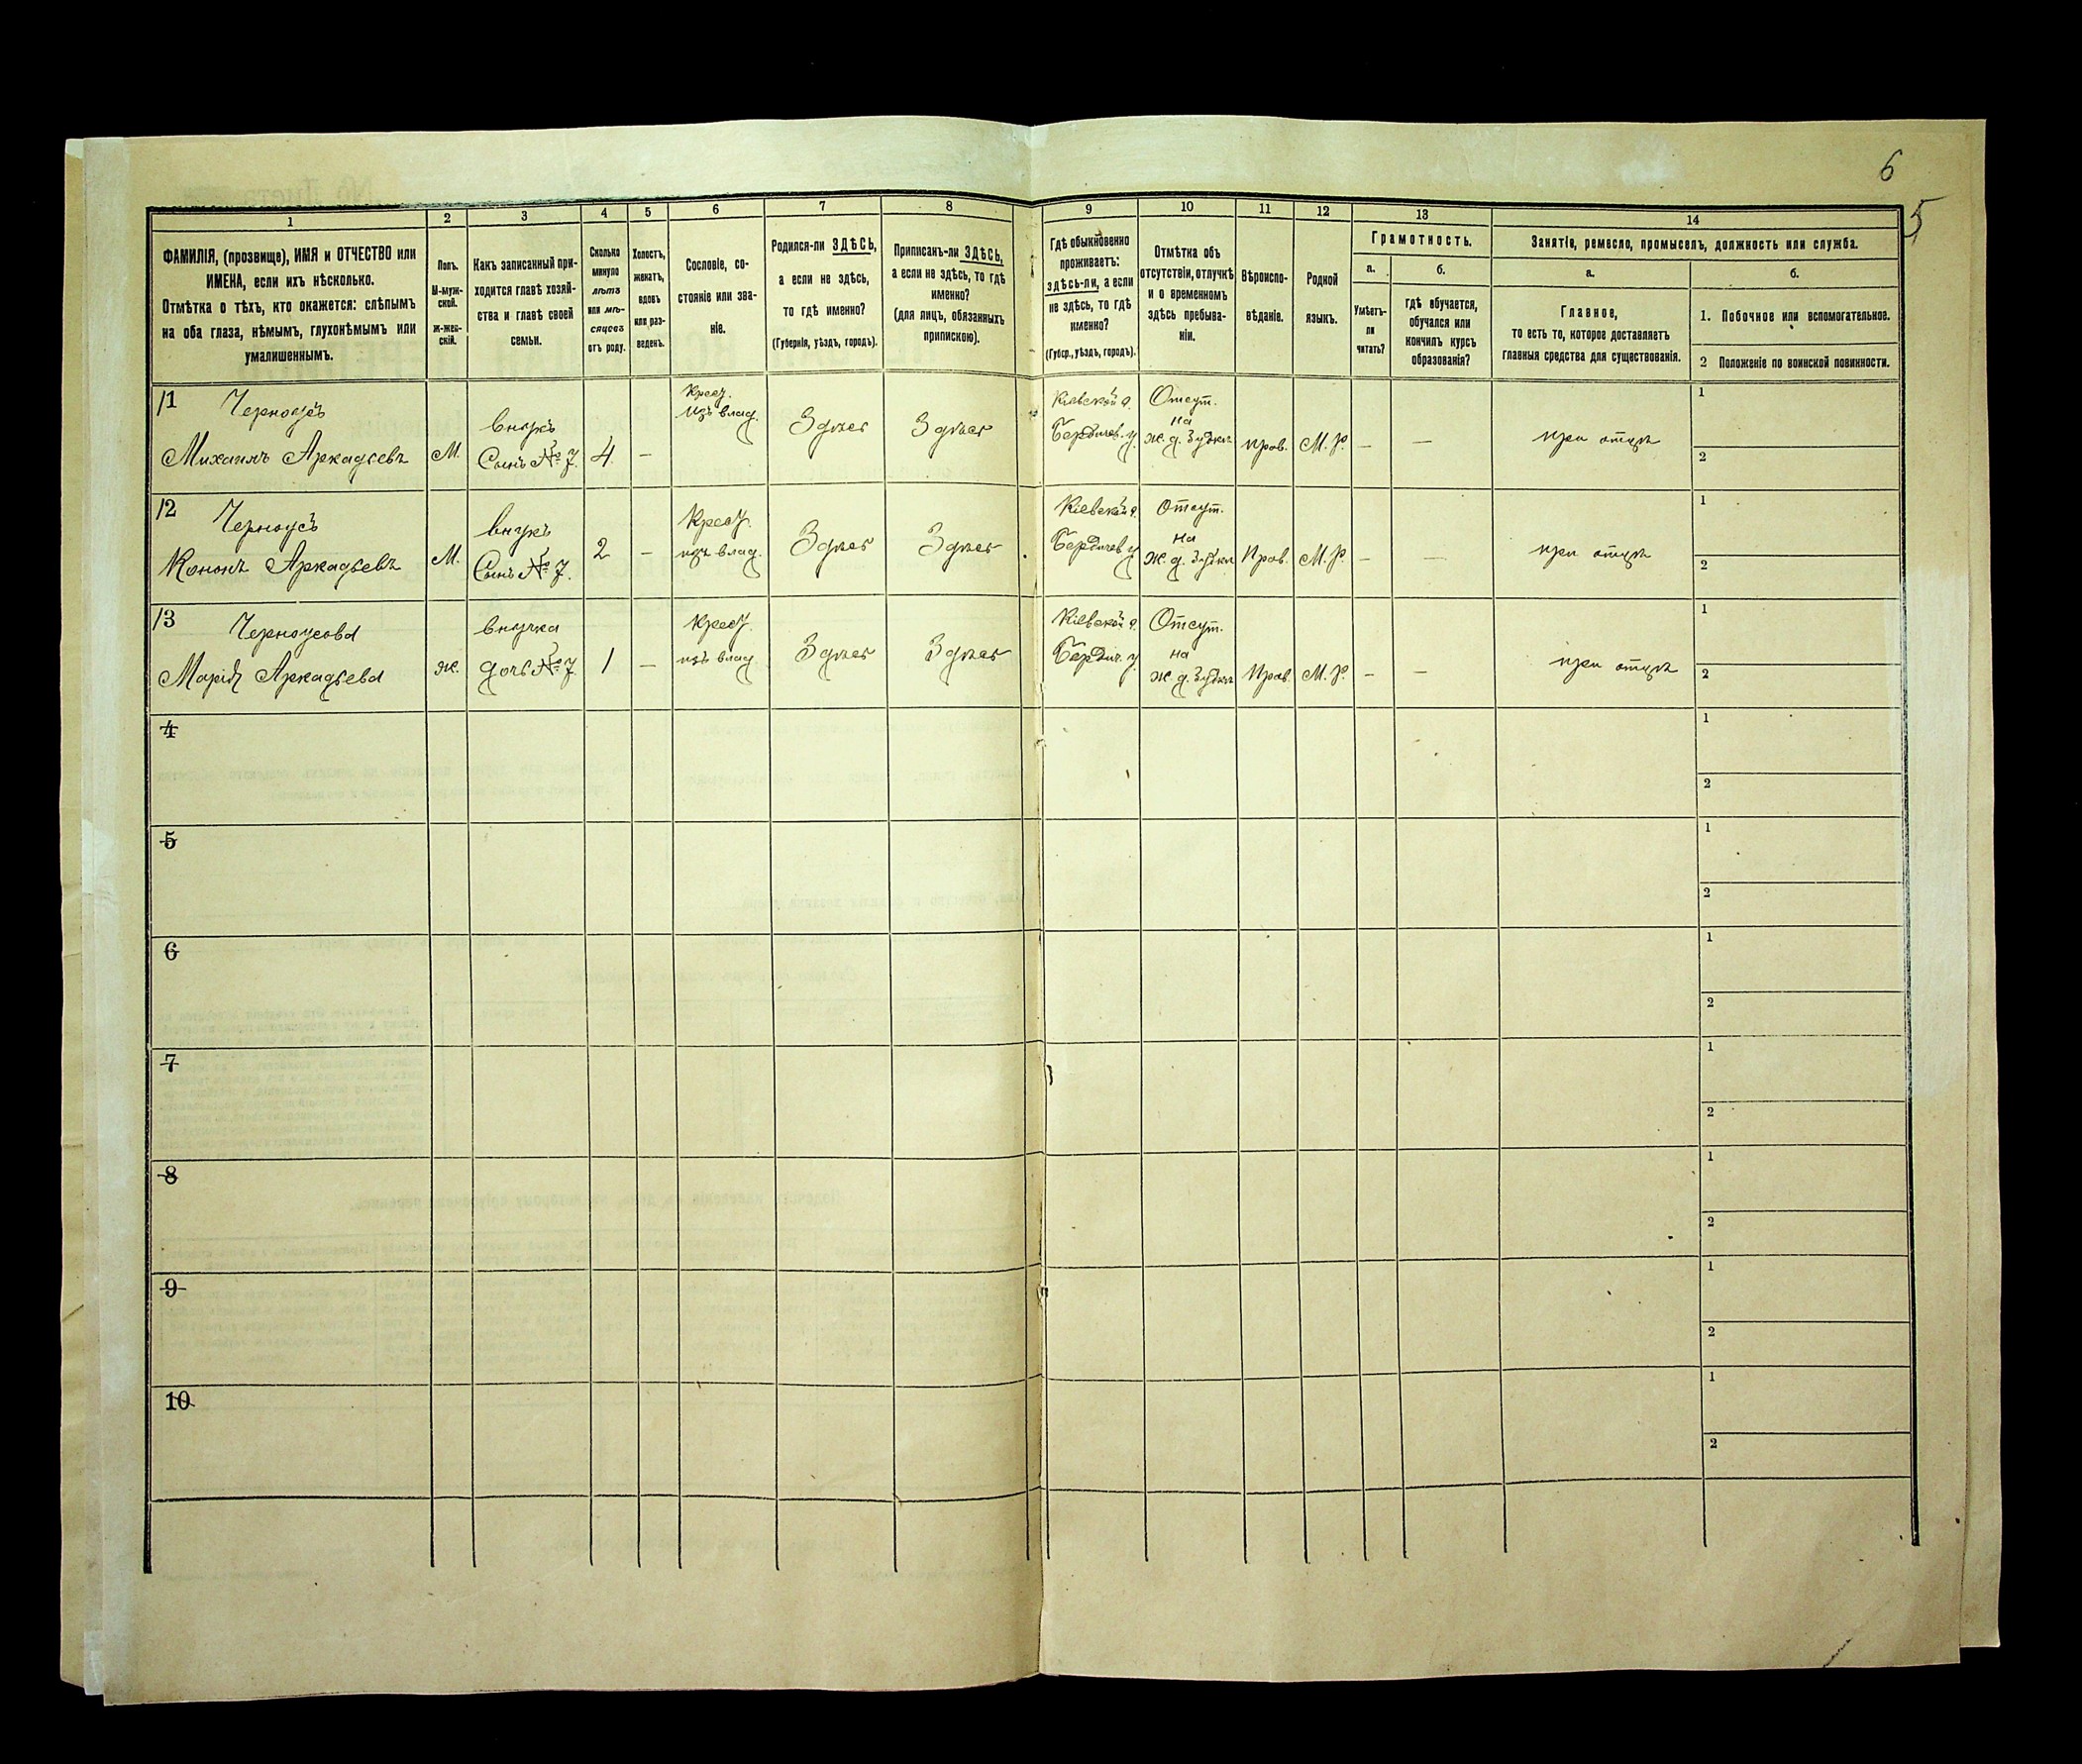 6
5
1
2
3
4
5
6
7
8
9
10
11
12
13
14
ФАМИЛІЯ, (прозвище), ИМЯ и ОТЧЕСТВО или
ИМЕНА, если ихъ нѣсколько.
Отмѣтка о тѣхъ, кто окажется: слѣпымъ
на оба глаза, нѣмымъ, глухонѣмымъ или
умалишеннымъ.
Полъ.
М-муж-
ской.
ж-жен-
скій.
Какъ записанный при-
ходится главѣ хозяй-
ства и главѣ своей
семьи.
Сколько
минуло
лѣтъ
или мѣ-
сяцевъ
отъ роду.
Холостъ,
женатъ,
вдовъ
или раз-
веденъ.
Сословіе, со-
стояніе или зва-
ніе.
Родился-ли ЗДѢСЬ,
а если не здѣсь,
то гдѣ именно?
(Губернія, уѣздъ, городъ).
Приписанъ-ли ЗДѢСЬ,
а если не здѣсь, то гдѣ
именно?
(для лицъ, обязанныхъ
припискою).
Гдѣ обыкновенно
проживаетъ:
здѣсь-ли, а если
не здѣсь, то гдѣ
именно?
(Губер., уѣздъ, городъ).
Отмѣтка объ
отсутствіи, отлучкѣ
и о временномъ
здѣсь пребыва-
ніи.
Вѣроиспо-
вѣданіе.
Родной
языкъ.
Грамотность.
а.
б.
Умѣетъ-
ли
читать?
гдѣ обучается,
обучался или
кончилъ курсъ
образованія?
Занятіе, ремесло, промыселъ, должность или служба.
а.
б.
Главное,
то есть то, которое доставляетъ
главныя средства для существованія.
1. Побочное или вспомогательное.
2 Положеніе по воинской повинности.
11
Черноусъ
Михаилъ Аркадьевъ
М.
внукъ
Сынъ № 7.
4
—
Крест.
изъ влад.
Здѣсь
Здѣсь
Кіевской г.
Бердичев. у.
Отсут.
на
ж. д.
прав.
М. р.
—
—
при отцѣ
1
2
12
Черноусъ
Кононъ Аркадьевъ
М.
внукъ
Сынъ № 7.
2
—
Крест.
изъ влад.
Здѣсь
Здѣсь
Кіевской г.
Бердичев у
Отсут.
на
ж. д.
Прав.
М. р.
—
—
при отцѣ
1
2
13
Черноусова
Марія Аркадьева
ж.
внучка
дочь № 7
1
—
Крест.
изъ влад
Здѣсь
Здѣсь
Кіевской г.
Бердич. у
Отсут.
на
ж. д.
Прав.
М. р.
—
—
при отцѣ
1
2
4
1
2
5
1
2
6
1
2
7
1
2
8
1
2
9
1
2
10
1
2